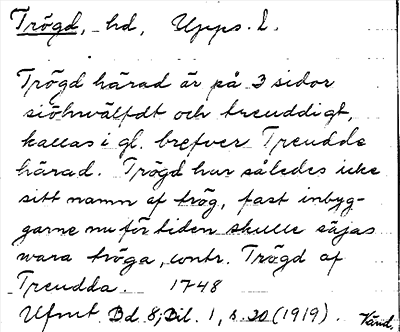 Trögd, hd, Upps. L.
Trögd härad är på 3 sidor
siöhwälfdt och treuddigt,
kallas i gl. brefver Treudde
härad. Trögd har således icke
sitt namn af trög, fast inbyg-
garne nu för tiden skulle säjas
wara tröga, contr. Trögd af
Treudda. 1748
Ufmt. Bd 8; Bil. 1, s. 20 (1919). Vänd.